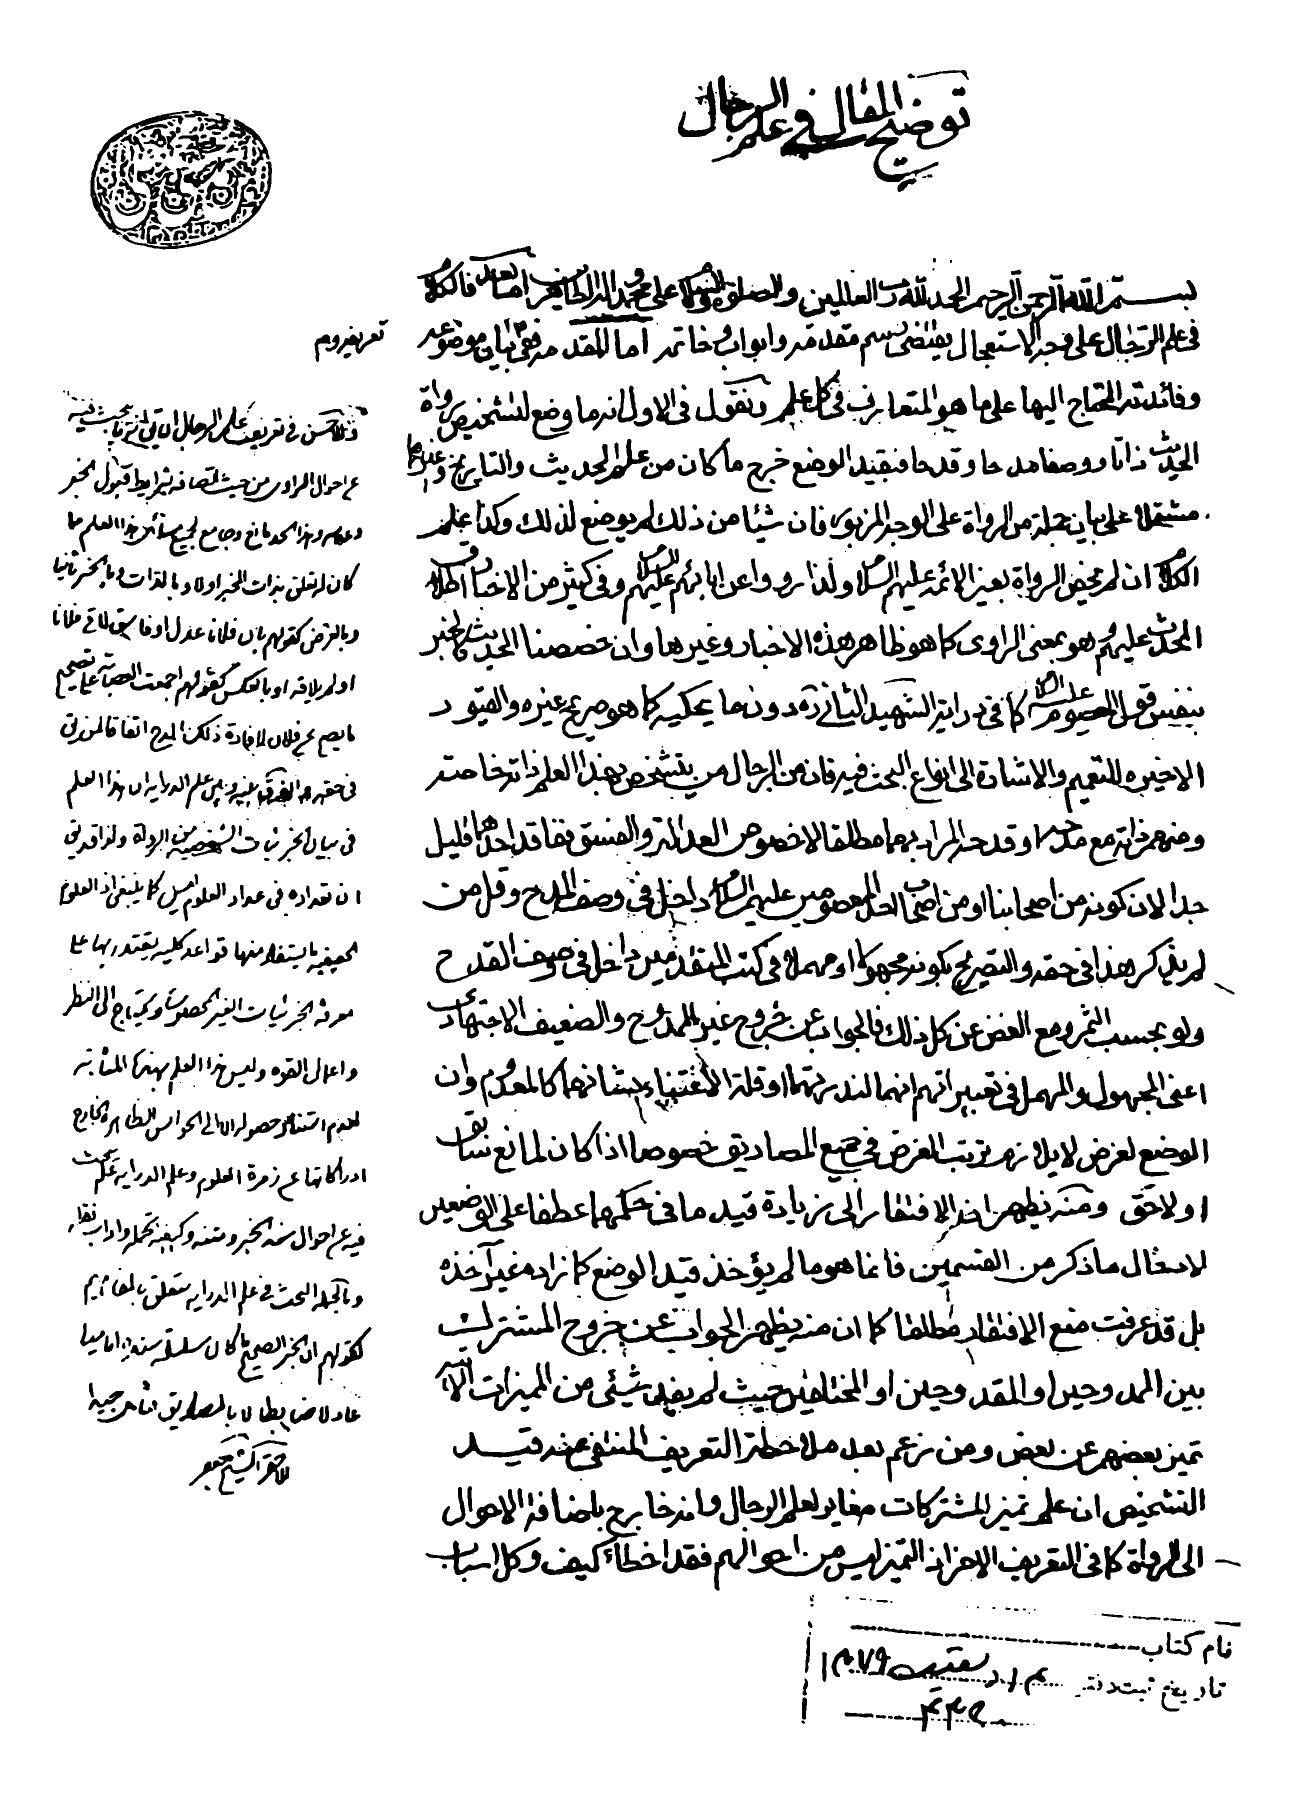 توضيح المقال في علم الرجال
بسم الله الرحمن الرحيم الحمد لله رب العالمين والصلوة والسلام على محمد واله الطاهرين اما بعد فالكلام
في علم الرجال على وجه الاستعجال يقتضى رسم مقدمة وابواب وخاتمة اما المقدمة ففى بيان موضوعه
وفائدته المحتاج اليها على ما هو المتعارف في كل علم ونقول في الاول انه ما وضع لتشخيص رواة
الحديث ذاتا ووصفا مدحا وقدحا فبقيد الوضع خرج ما كان من علم الحديث والتاريخ وغيرهما
مشتملا على بيان جملة من الرواة على الوجه المزبور فان شيئا من ذلك لم يوضع لذلك وكذا علم
الكلام ان لم نخص الرواة بغير الائمه عليهم السلام ولذا رووا عن ابائهم عليهم السلام وفى كثير من الاخبار اطلاق
المحدث عليهم وهو بمعنى الراوى كما هو ظاهر هذه الاخبار وغيرها وان خصصنا الحديث كالخبر
بنفس قول المعصوم عليه السلام كما في دراية الشهيد الثانى ره دون ما يحكيه كما هو صريح غيره والقيود
الاخيره للتعميم والاشارة الى انواع البحث فيه فان من الرجال من يتشخص بهذا العلم ذاته خاصة
ومنهم ذاته مع مدحه او قدحه المراد بهما مطلقا لا خصوص العدالة والفسق ففاقد احدهما قليل
جدا لان كونه من اصحابنا او من اصحاب احد المعصومين عليهم السلام داخل في وصف المدح وقل من
لم يذكر هذا في حقه والتصريح بكونه مجهولا او مهملا في كتب المتقدمين داخل في وصف القدح
ولو بحسب الثمر ومع الغض عن كل ذلك فالجواب عن خروج غير الممدوح والضعيف الاجتهادى
اعنى المجهول والمهمل في تعبيراتهم انهما لندرتهما او قلة الاعتناء بشانهما كالمعدوم وان
الوضع لغرض لا يلازمه ترتب الغرض في جميع المصاديق خصوصا اذا كان لمانع سابق
او لاحق ومنه يظهر الافتقار الى زيادة قيد ما في حكمهما عطفا على الوضعين
لادخال ما ذكر من القسمين فانما هو ما لم يؤخذ قيد الوضع كما زاده غير آخذه
بل قد عرفت منع الافتقار مطلقا كما ان منه يظهر الجواب عن خروج المشترك
بين الممدوحين او المقدوحين او المختلفين حيث لم يفد شيئى من المميزات الآتية
تميز بعضهم عن بعض ومن زعم بعد ملاحظة التعريف المنتفى عنه قيد
التشخيص ان علم تميز المشتركات مغاير لعلم الرجال وانه خارج باضافة الاحوال
الى الرواة كما في التعريف الاخر اذ التميز ليس من احوالهم فقد اخطأ كيف وكل اسباب
تعريف دوم
والاحسن في تعريف علم الرجال ان يقال انه ما يبحث فيه
عن احوال الراوى من حيث اتصافه بشرايط قبول الخبر
وعدمه وهذا الحد مانع وجامع لجميع مسائل هذا العلم مما
كان له تعلق بذات الخبر اولا وبالذات وبالخبر ثانيا
وبالعرض كقولهم بان فلانا عدل او فاسق لاقى فلانا
او لم يلاقه او بالعكس كقولهم اجمعت العصابة على تصحيح
ما يصح عن فلان لافادة ذلك المدح اتفاقا لمن قيل
في حقه والفرق بينه وبين علم الدراية ان هذا العلم
في بيان الجزئيات الشخصية من الرواة ولذا قد يقال
ان تعداده في عداد العلوم ليس كما ينبغى اذ العلوم
الحقيقيه ما يستفاد منها قواعد كليه يقتدر بها على
معرفة الجزئيات الغير المحصورة ويحتاج الى النظر
واعمال القوه وليس هذا العلم بهذه المثابة
لعدم استناد حصوله الا الى الحواس الظاهرة الخارج
ادراكاتها عن زمرة العلوم وعلم الدراية علم يبحث
فيه عن احوال سند الخبر ومتنه وكيفية تحمله واداب نقله
وبالجملة البحث في علم الدراية متعلق بالمفاهيم
كقولهم ان الخبر الصحيح ما كان سلسلة سنده اماميا
عادلا ضابطا لا بالمصاديق
نام كتاب
تاريخ ثبت دفتر